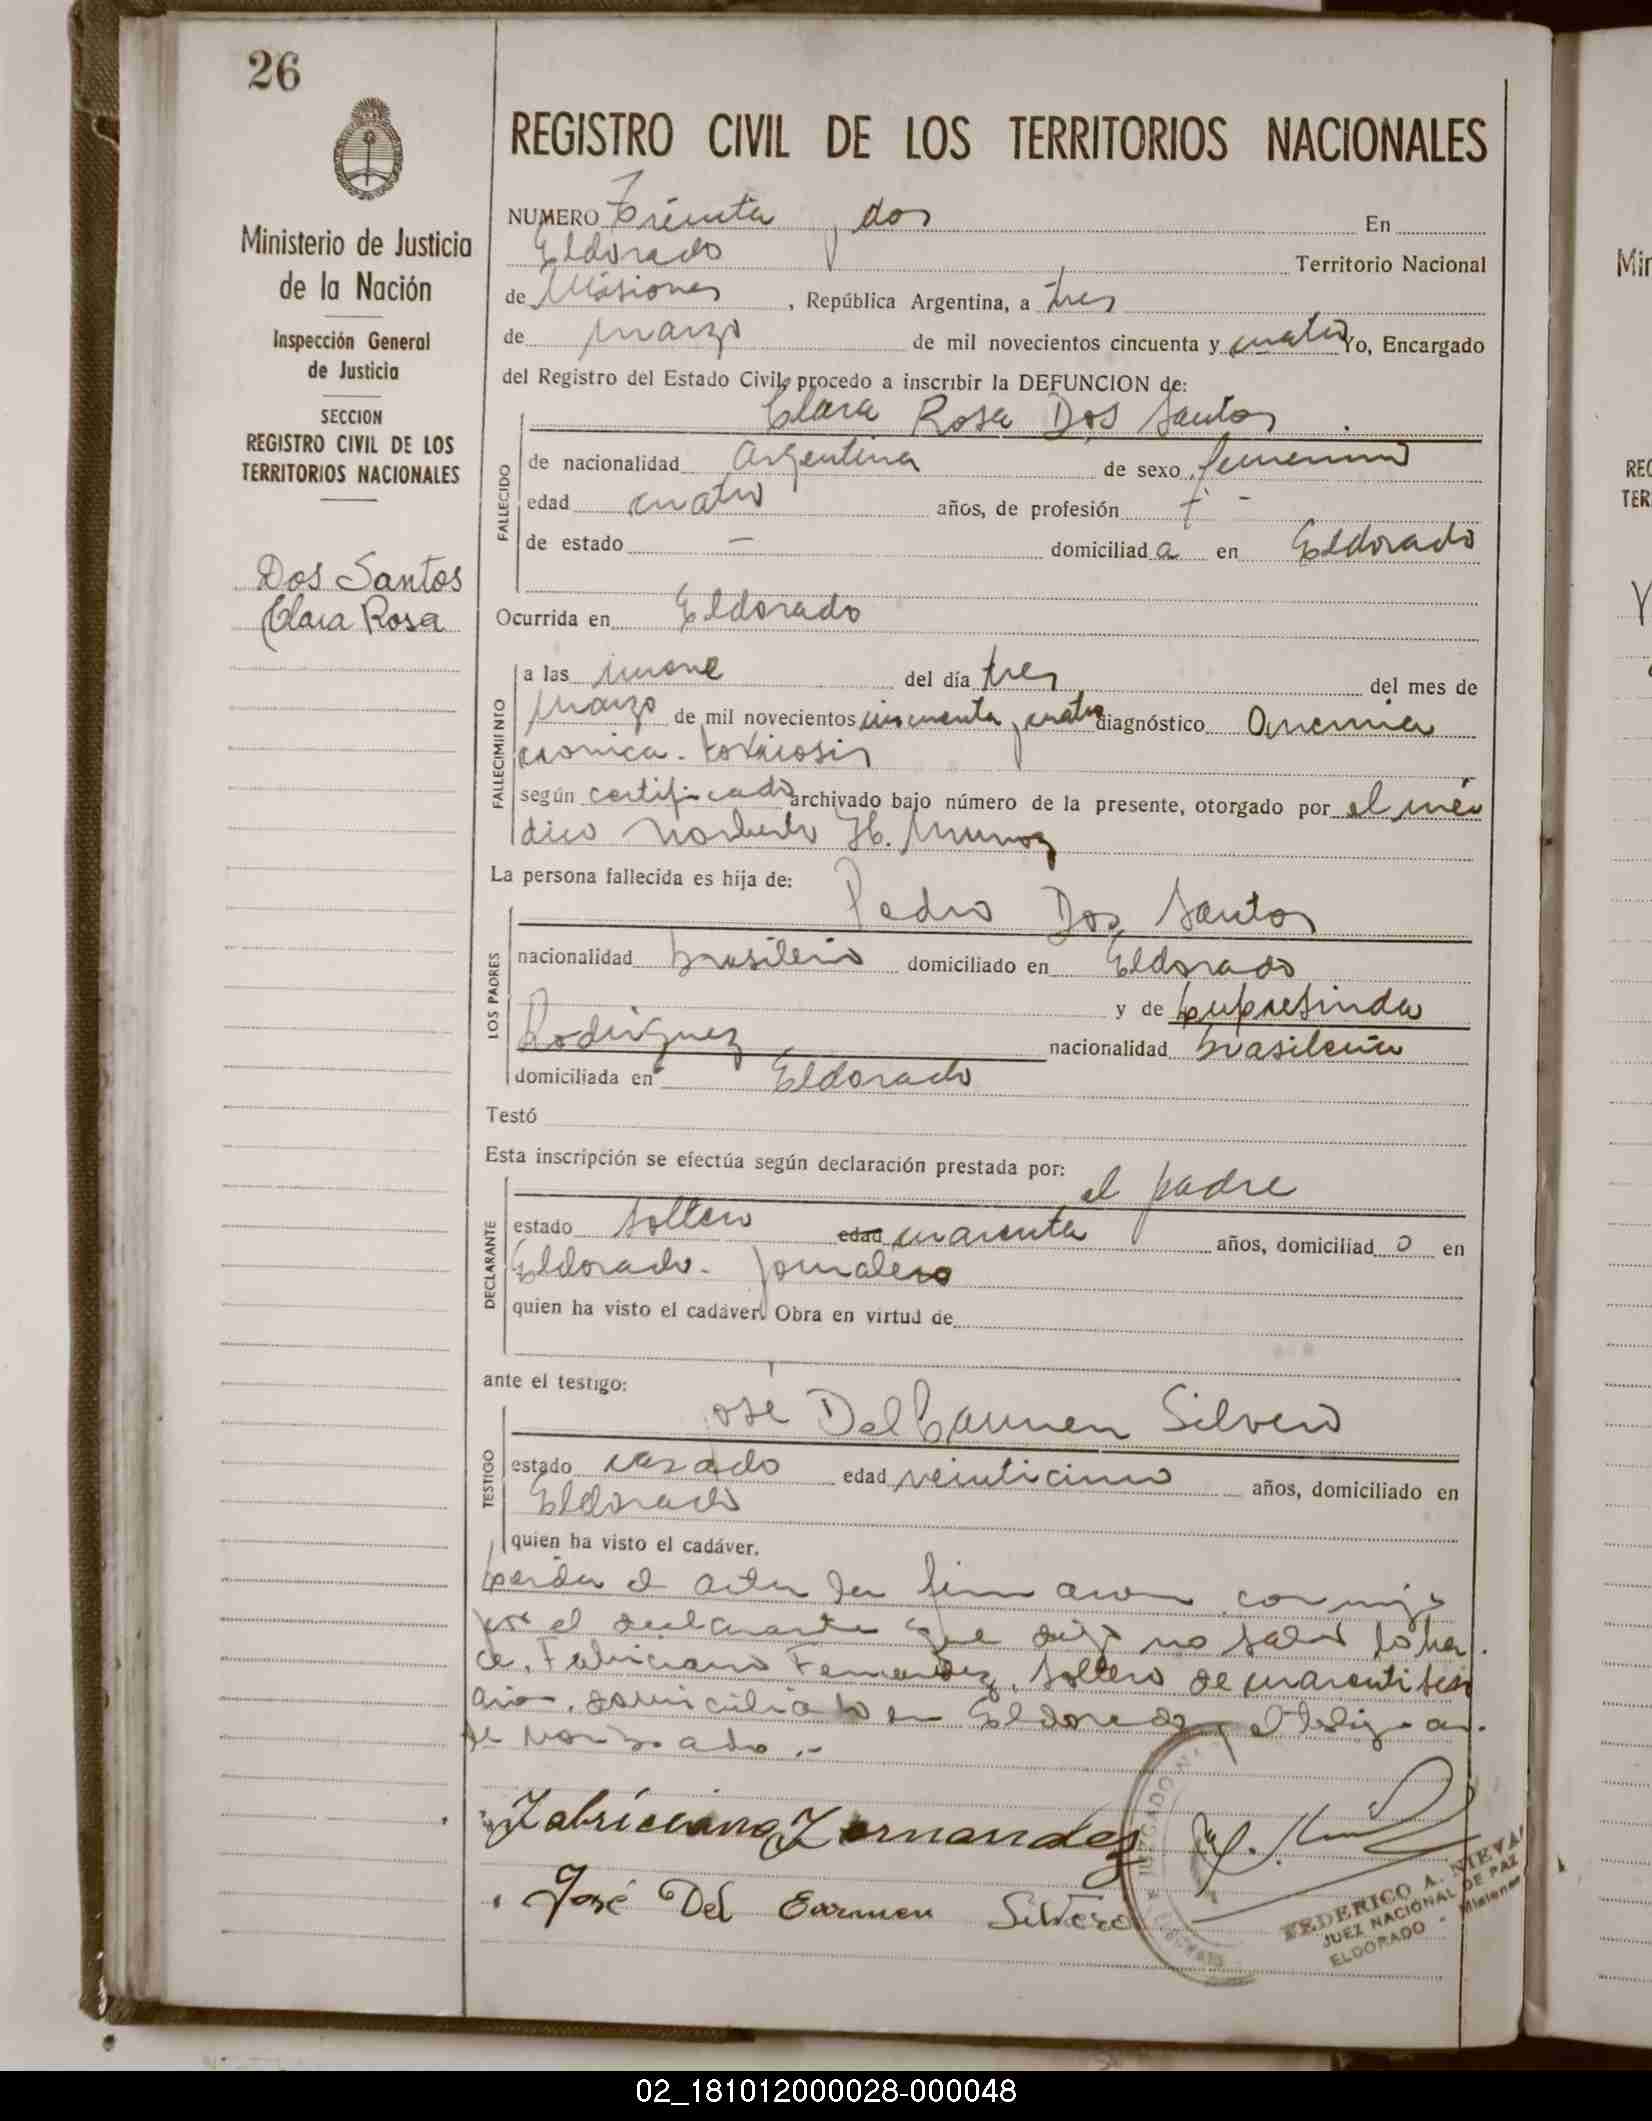 26
REGISTRO CIVIL DE LOS TERRITORIOS NACIONALES
Ministerio de Justicia
de la Nación
Inspección General
de Justicia
SECCION
REGISTRO CIVIL DE LOS
TERRITORIOS NACIONALES
Dos Santos
Clara Rosa
NUMERO Treinta y dos En
Eldorado Territorio Nacional
de Misiones, República Argentina, a tres
de marzo de mil novecientos cincuenta y cuatro Yo, Encargado
del Registro del Estado Civil, procedo a inscribir la DEFUNCION de:
Clara Rosa Dos Santos
FALLECIDO
de nacionalidad Argentina de sexo femenino
edad cuatro años, de profesión -
de estado - domiciliad a en Eldorado
Ocurrida en Eldorado
FALLECIMIENTO
a las del día tres del mes de
marzo de mil novecientos cincuenta y cuatro diagnóstico Anemia
cronica - toxicosis
según certificado archivado bajo número de la presente, otorgado por el mé
dico Norberto H. Munoz
La persona fallecida es hija de:
Pedro Dos Santos
LOS PADRES
nacionalidad brasilero domiciliado en Eldorado
y de
Rodriguez nacionalidad brasilera
domiciliada en Eldorado
Testó
Esta inscripción se efectúa según declaración prestada por:
el padre
DECLARANTE
estado soltero edad cuarenta años, domiciliad o en
Eldorado. jornalero
quien ha visto el cadáver. Obra en virtud de
ante el testigo:
José Del Carmen Silvero
TESTIGO
estado casado edad veinticinco años, domiciliado en
Eldorado
quien ha visto el cadáver.
el acta la firmaron conmigo
por el declarante que dijo no saber lo ha
ce, Fabriciano Fernandez, soltero de
años, domiciliado en Eldorado y el testigo
Fabriciano Fernandez
José Del Carmen Silvero
JUZGADO
FEDERICO A. NIEVA
JUEZ NACIONAL DE PAZ
ELDORADO - Misiones
02_181012000028-000048